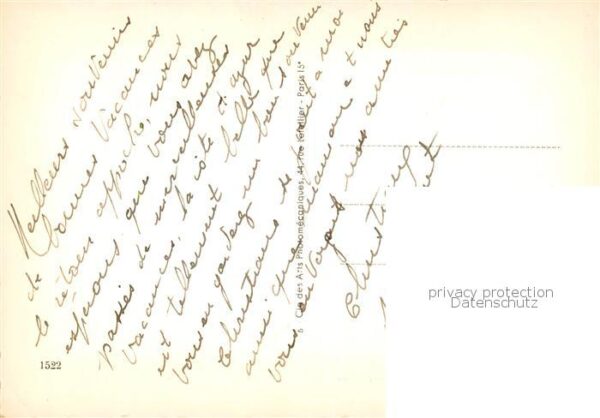 Meilleurs souvenirs
de bonnes vacances
le retour approche, nous
espérons que vous avez
passés de merveilleuses
vacances, la côte d'azur
est tellement belle que
vous en gardez un bon souvenir
Christiane se joint à moi
ainsi que maman et nous
vous envoyons nos amitiés
6 Cie des Arts Photomécaniques, 44, rue Letellier - Paris 15e
1522
privacy protection
Datenschutz